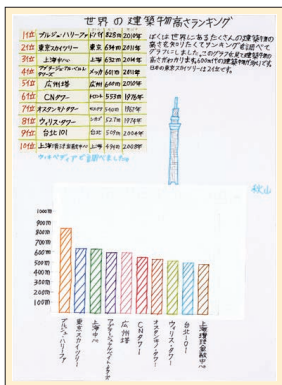 世界の建築物高さランキング
1位 ブルジュ・ハリーファ ドバイ 828m 2010年
2位 東京スカイツリー 東京 634m 2011年
3位 上海中心 上海 632m 2014年
4位 メッカ 601m 2012年
5位 広州塔 広州 600m 2010年
6位 CNタワー トロント 553m 1976年
7位 オスタンキノ・タワー 540m 1967年
8位 ウィリス・タワー シカゴ 527m 1974年
9位 台北101 台北 509m 2004年
10位 上海環球金融中心 上海 494m 2008年
ウィキペディアで調べました
ぼくは世界にあるたくさんの建築物の
高さを知りたくてランキングを調べて
グラフにしました。このグラフを見て建築物の
高さがわかります。600m
日本の東京スカイツリーは2位です。
秋山
1000m
900m
800m
700m
600m
500m
400m
300m
200m
100m
ブルジュ・ハリーファ
東京スカイツリー
上海中心
広州塔
CNタワー
オスタンキノ・タワー
ウィリス・タワー
台北101
上海環球金融中心